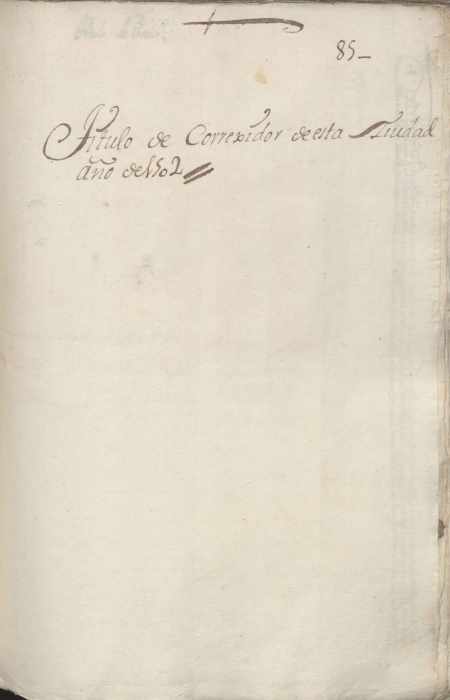 85_
Titulo de Correxidor de esta Ciudad
año de 1502